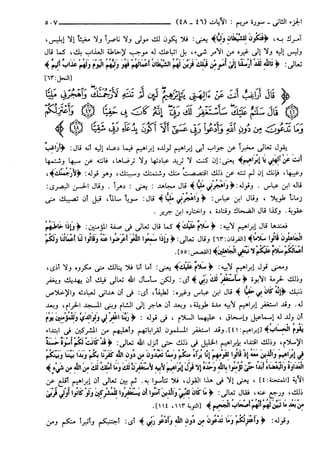 الجزء الثاني - سورة مريم: الآيات (٤٦ - ٤٨) ٥٠٧
أمرك به، ﴿فَتَكُونَ لِلشَّيْطَانِ وَلِيًّا﴾ يعني: فلا يكون لك مولى ولا ناصراً ولا مغيثاً إلا إبليس،
وليس إليه ولا إلى غيره من الأمر شيء، بل اتباعك له موجب لإحاطة العذاب بك، كما قال
تعالى: ﴿تَاللَّهِ لَقَدْ أَرْسَلْنَا إِلَى أُمَمٍ مِنْ قَبْلِكَ فَزَيَّنَ لَهُمُ الشَّيْطَانُ أَعْمَالَهُمْ فَهُوَ وَلِيُّهُمُ الْيَوْمَ وَلَهُمْ عَذَابٌ أَلِيمٌ﴾
[النحل: ٦٣]
﴿قَالَ أَرَاغِبٌ أَنْتَ عَنْ آلِهَتِي يَا إِبْرَاهِيمُ لَئِنْ لَمْ تَنْتَهِ لَأَرْجُمَنَّكَ وَاهْجُرْنِي مَلِيًّا
قَالَ سَلَامٌ عَلَيْكَ سَأَسْتَغْفِرُ لَكَ رَبِّي إِنَّهُ كَانَ بِي حَفِيًّا وَأَعْتَزِلُكُمْ
وَمَا تَدْعُونَ مِنْ دُونِ اللَّهِ وَأَدْعُو رَبِّي عَسَى أَلَّا أَكُونَ بِدُعَاءِ رَبِّي شَقِيًّا﴾
يقول تعالى مخبراً عن جواب أبي إبراهيم لولده إبراهيم فيما دعاه إليه أنه قال: ﴿أَرَاغِبٌ
أَنْتَ عَنْ آلِهَتِي يَا إِبْرَاهِيمُ﴾ يعني: إن كنت لا تريد عبادتها ولا ترضاها، فانته عن سبها وشتمها
وعيبها، فإنك إن لم تنته عن ذلك اقتصصت منك وشتمتك وسببتك، وهو قوله: ﴿لَأَرْجُمَنَّكَ﴾،
قاله ابن عباس. وقوله: ﴿وَاهْجُرْنِي مَلِيًّا﴾ قال مجاهد: يعني: دهراً. وقال الحسن البصري:
زماناً طويلاً، وقال ابن عباس: ﴿وَاهْجُرْنِي مَلِيًّا﴾ قال: سوياً سالماً، قبل أن تصيبك مني
عقوبة. وكذا قال الضحاك وقتادة، واختاره ابن جرير.
فعندها قال إبراهيم لأبيه: ﴿سَلَامٌ عَلَيْكَ﴾ كما قال تعالى في صفة المؤمنين: ﴿وَإِذَا خَاطَبَهُمُ
الْجَاهِلُونَ قَالُوا سَلَامًا﴾ [الفرقان: ٦٣] وقال تعالى: ﴿وَإِذَا سَمِعُوا اللَّغْوَ أَعْرَضُوا عَنْهُ وَقَالُوا لَنَا أَعْمَالُنَا وَلَكُمْ
أَعْمَالُكُمْ سَلَامٌ عَلَيْكُمْ لَا نَبْتَغِي الْجَاهِلِينَ﴾ [القصص: ٥٥].
ومعنى قول إبراهيم لأبيه: ﴿سَلَامٌ عَلَيْكَ﴾ يعني: أما أنا فلا ينالك مني مكروه ولا أذى،
وذلك لحرمة الأبوة ﴿سَأَسْتَغْفِرُ لَكَ رَبِّي﴾ أي: ولكن سأسأل الله تعالى فيك أن يهديك ويغفر
ذنبك ﴿إِنَّهُ كَانَ بِي حَفِيًّا﴾ قال ابن عباس وغيره: لطيفاً، أي: في أن هداني لعبادته والإخلاص
له. وقد استغفر إبراهيم لأبيه مدة طويلة، وبعد أن هاجر إلى الشام وبنى المسجد الحرام، وبعد
أن ولد له إسماعيل وإسحاق، عليهما السلام، في قوله: ﴿رَبَّنَا اغْفِرْ لِي وَلِوَالِدَيَّ وَلِلْمُؤْمِنِينَ يَوْمَ
يَقُومُ الْحِسَابُ﴾ [إبراهيم: ٤١]. وقد استغفر المسلمون لقراباتهم وأهليهم من المشركين في ابتداء
الإسلام، وذلك اقتداء بإبراهيم الخليل في ذلك حتى أنزل الله تعالى: ﴿قَدْ كَانَتْ لَكُمْ أُسْوَةٌ حَسَنَةٌ
فِي إِبْرَاهِيمَ وَالَّذِينَ مَعَهُ إِذْ قَالُوا لِقَوْمِهِمْ إِنَّا بُرَآءُ مِنْكُمْ وَمِمَّا تَعْبُدُونَ مِنْ دُونِ اللَّهِ كَفَرْنَا بِكُمْ وَبَدَا بَيْنَنَا وَبَيْنَكُمُ
الْعَدَاوَةُ وَالْبَغْضَاءُ أَبَدًا حَتَّى تُؤْمِنُوا بِاللَّهِ وَحْدَهُ إِلَّا قَوْلَ إِبْرَاهِيمَ لِأَبِيهِ لَأَسْتَغْفِرَنَّ لَكَ وَمَا أَمْلِكُ لَكَ مِنَ اللَّهِ مِنْ شَيْءٍ﴾
الآية [الممتحنة: ٤]، يعني إلا في هذا القول، فلا تتأسوا به. ثم بين تعالى أن إبراهيم أقلع عن
ذلك، ورجع عنه، فقال تعالى: ﴿مَا كَانَ لِلنَّبِيِّ وَالَّذِينَ آمَنُوا أَنْ يَسْتَغْفِرُوا لِلْمُشْرِكِينَ وَلَوْ كَانُوا أُولِي قُرْبَى
مِنْ بَعْدِ مَا تَبَيَّنَ لَهُمْ أَنَّهُمْ أَصْحَابُ الْجَحِيمِ﴾ [التوبة ١١٣، ١١٤].
وقوله: ﴿وَأَعْتَزِلُكُمْ وَمَا تَدْعُونَ مِنْ دُونِ اللَّهِ وَأَدْعُو رَبِّي﴾ أي: أجتنبكم وأتبرأ منكم ومن